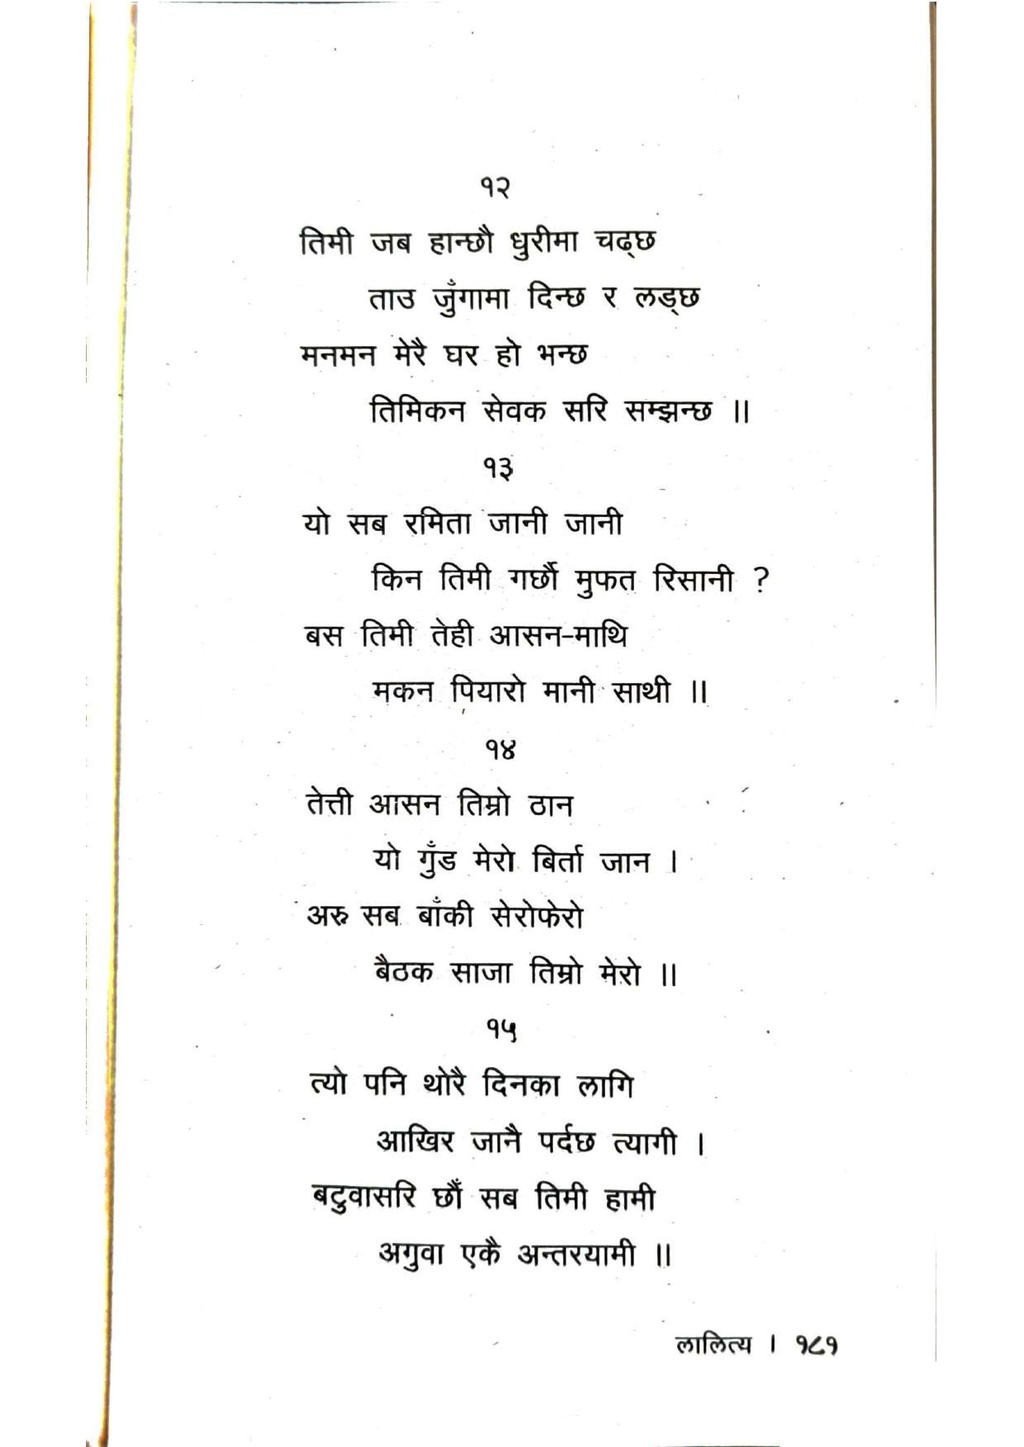 १२
तिमी जब हान्छौ धुरीमा चढ्छ
ताउ जुँगामा दिन्छ र लड्छ
मनमन मेरै घर हो भन्छ
तिमिकन सेवक सरि सम्झन्छ ॥
१३
यो सब रमिता जानी जानी
किन तिमी गर्छौ मुफत रिसानी ?
बस तिमी तेही आसन-माथि
मकन पियारो मानी साथी ॥
१४
तेत्ती आसन तिम्रो ठान
यो गुँड मेरो बिर्ता जान ।
अरु सब बाँकी सेरोफेरो
बैठक साजा तिम्रो मेरो ॥
१५
त्यो पनि थोरै दिनका लागि
आखिर जानै पर्दछ त्यागी ।
बटुवासरि छौँ सब तिमी हामी
अगुवा एकै अन्तरयामी ॥
लालित्य । १८१